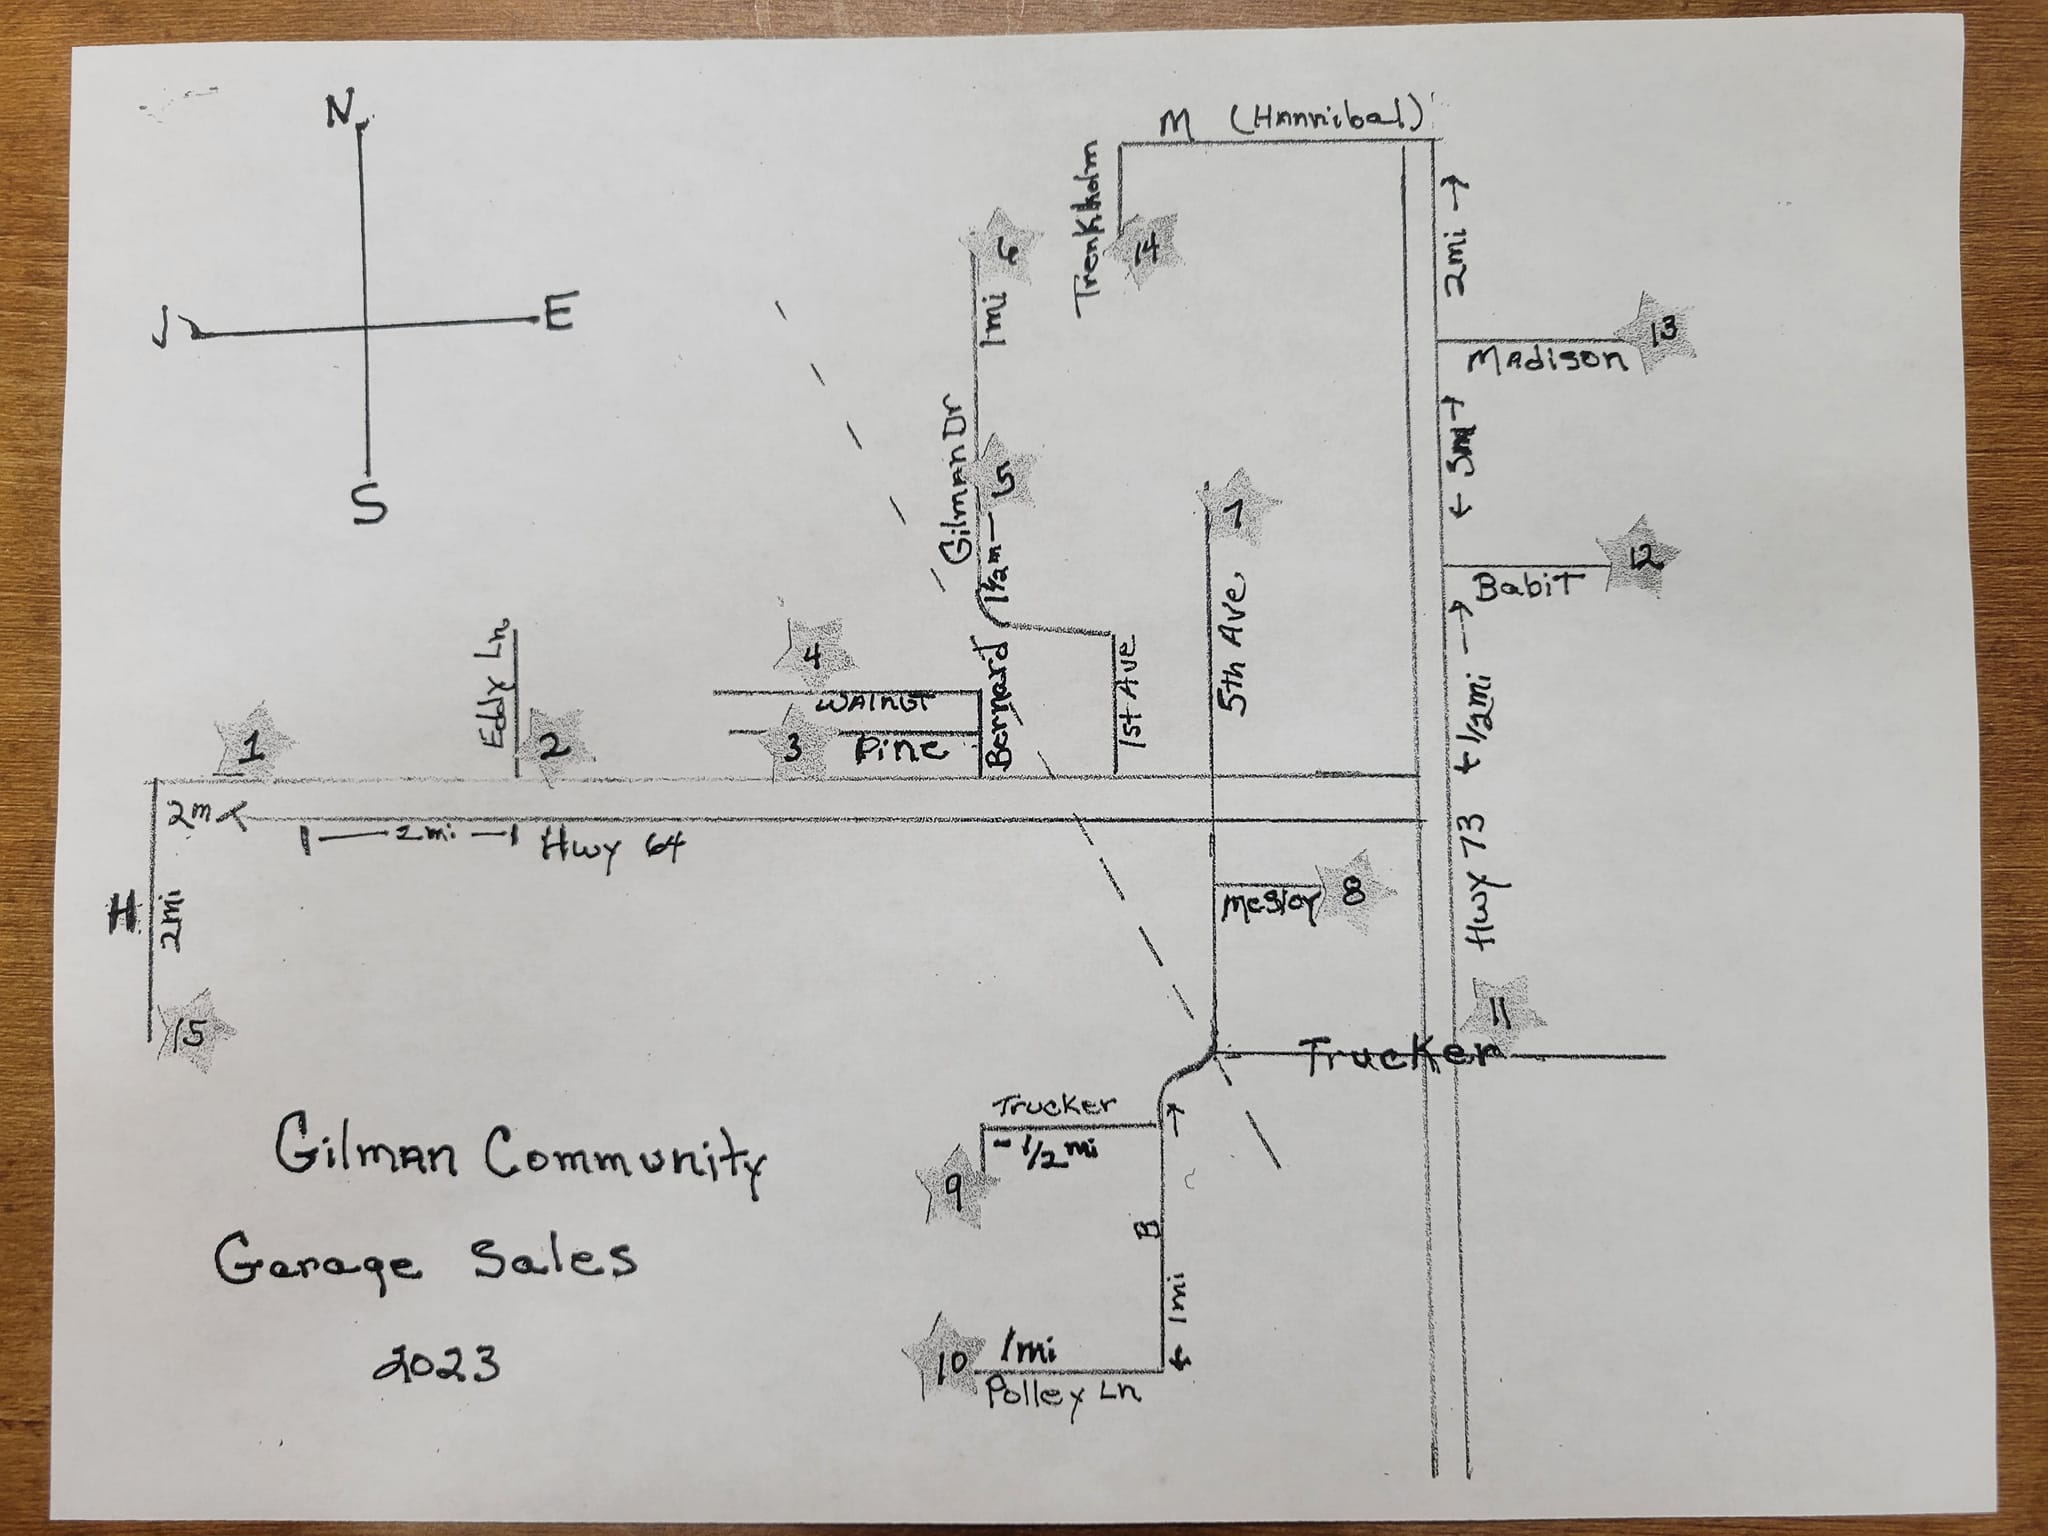 N
E
S
M (Hannibal)
Trenkholm
14
2mi →
13
Madison
6
1mi
Gilman Dr
5
1½m
7
← 3m →
12
Babit
Eddy Ln
4
Walnut
Bernard
1st Ave
5th Ave.
← 1/2mi →
1
2
3
Pine
2m
2mi
Hwy 64
Hwy 73
H
2mi
8
15
11
Trucker
Trucker
1/2 mi
9
B
1mi
10
1mi
Polley Ln
Gilman Community
Garage Sales
2023